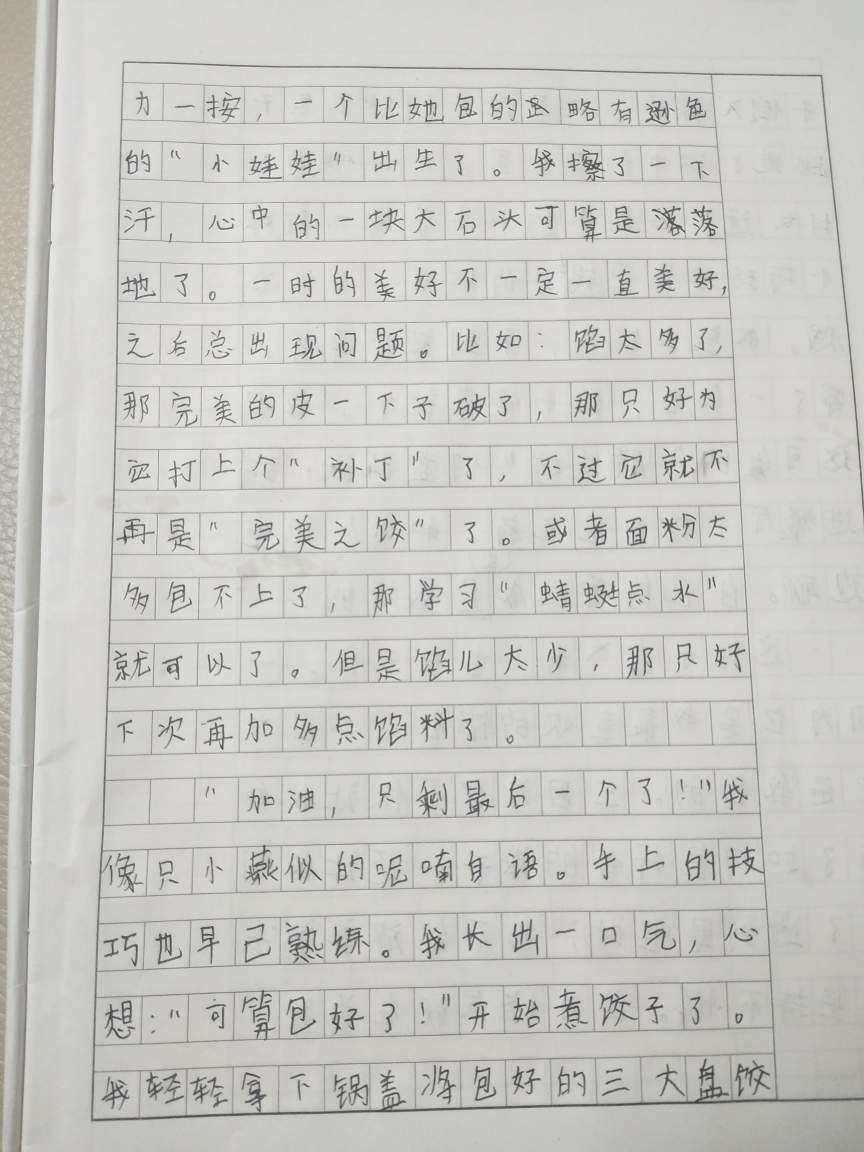 力一按，一个比她包的逊略有逊色
的“小娃娃”出生了。我擦了一下
汗，心中的一块大石头可算是落落
地了。一时的美好不一定一直美好，
之后总出现问题。比如：馅太多了，
那完美的皮一下子破了，那只好为
它打上个“补丁”了，不过它就不
再是“完美之饺”了。或者面粉太
多包不上了，那学习“蜻蜓点水”
就可以了。但是馅儿太少，那只好
下次再加多点馅料了。
“加油，只剩最后一个了！”我
像只小燕似的呢喃自语。手上的技
巧也早已熟练。我长出一口气，心
想：“可算包好了！”开始煮饺子了。
我轻轻拿下锅盖将包好的三大盘饺